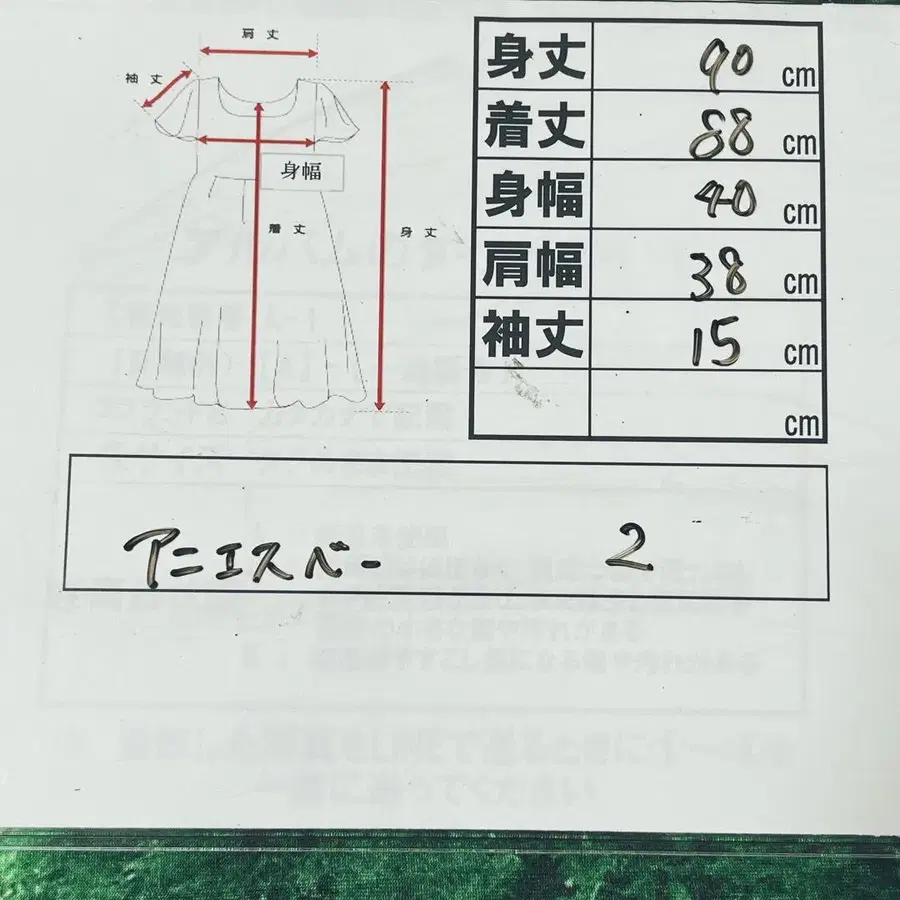 肩 丈
袖 丈
身幅
着 丈
身 丈
身丈 90 cm
着丈 88 cm
身幅 40 cm
肩幅 38 cm
袖丈 15 cm
cm
アニエスベー 2